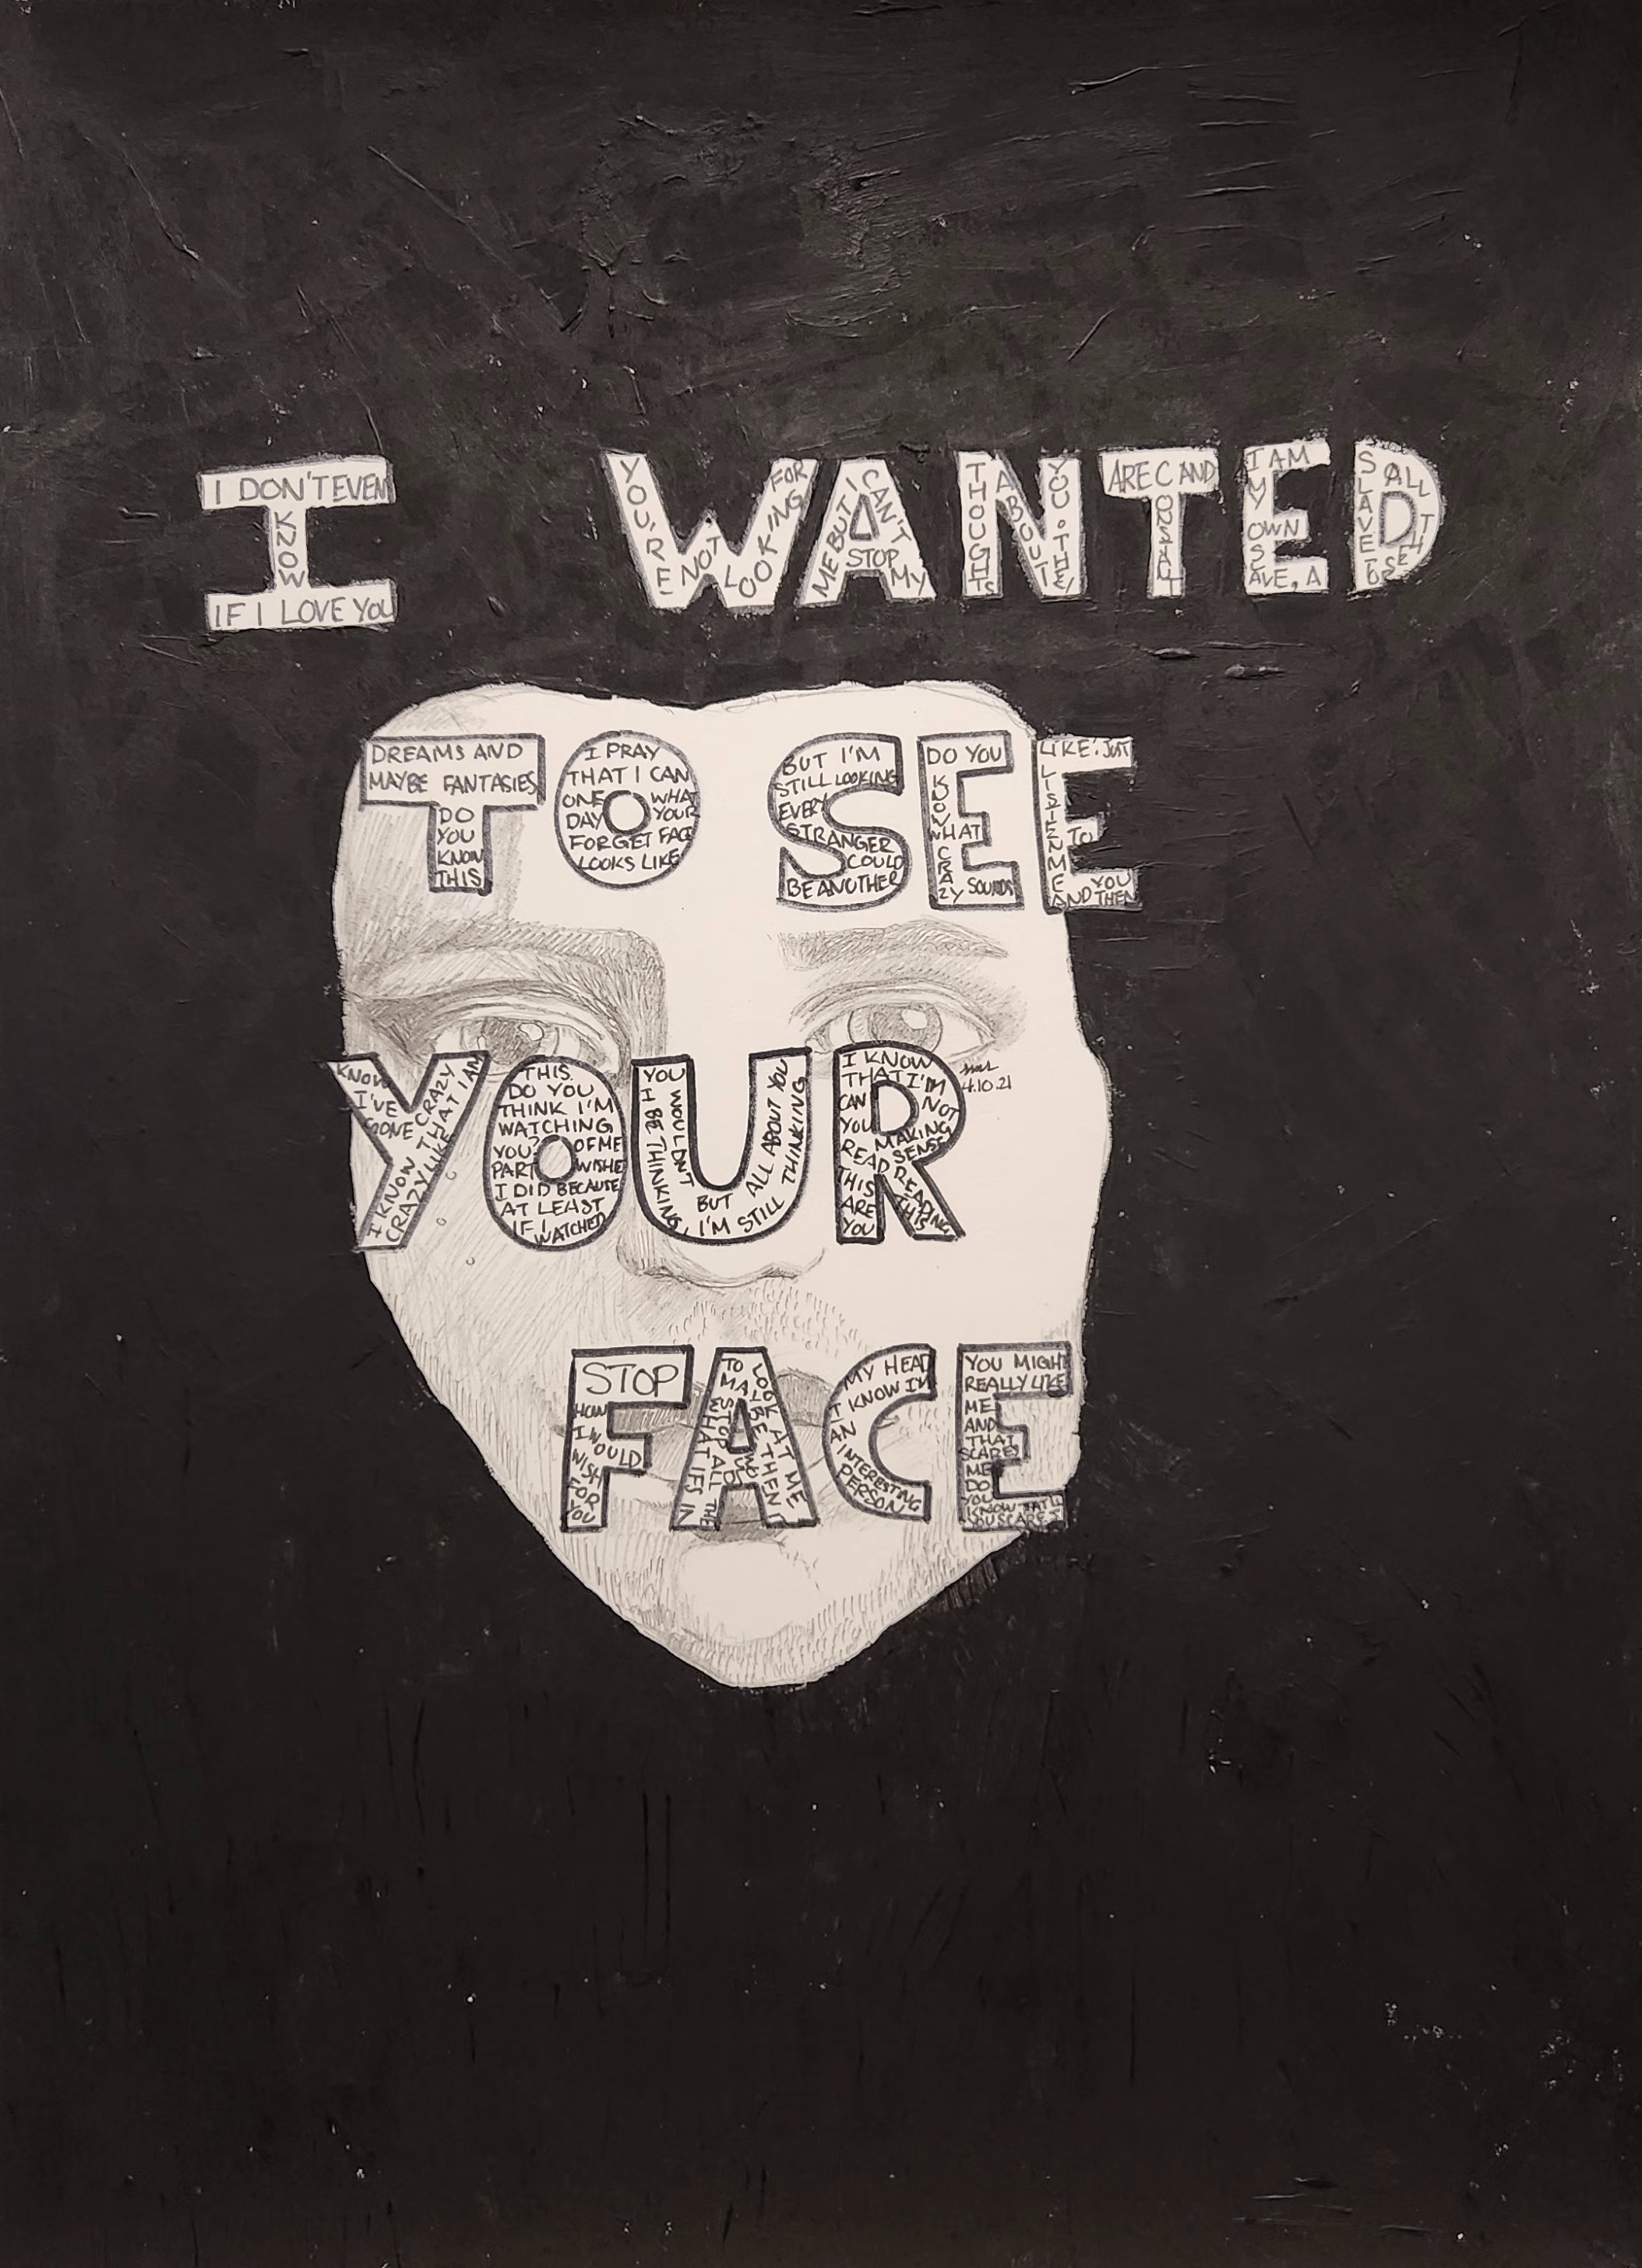 I WANTED
TO SEE
YOUR
FACE
I DON'T EVEN
KNOW
IF I LOVE YOU
YOU'RE NOT LOOKING FOR
ME BUT I CAN'T STOP MY
THOUGHTS ABOUT YOU. THEY
ARE CONSTANT AND
I AM MY OWN SLAVE, A
SLAVE TO ALL THESE
DREAMS AND
MAYBE FANTASIES
DO
YOU
KNOW
THIS
I PRAY
THAT I CAN
ONE DAY
FORGET WHAT YOUR FACE
LOOKS LIKE
BUT I'M
STILL LOOKING
EVERY
STRANGER
COULD
BE ANOTHER
DO YOU
KNOW WHAT
CRAZY SOUNDS
LIKE? JUST
LISTEN TO
ME
AND THEN YOU
KNOW
I'VE
GONE CRAZY
I KNOW THAT I AM
CRAZY LIKE
THIS.
DO YOU
THINK I'M
WATCHING
YOU? PART
OF ME WISHES
I DID BECAUSE
AT LEAST
IF I
WATCHED
YOU WOULDN'T
BE THINKING,
BUT ALL ABOUT YOU
I'M STILL THINKING
I KNOW
THAT I'M
NOT
MAKING
SENSE
CAN
YOU
READ
THIS
ARE
YOU
READING
THIS
4.10.21
STOP
HOW
I WOULD
WISH
FOR
YOU
TO LOOK AT ME
MAYBE THEN I
STOP ALL THE
WHAT IFS IN
MY HEAD
I KNOW I'M
AN
INTERESTING
PERSON
YOU MIGHT
REALLY LIKE
ME
AND
THAT
SCARES
ME
DO
YOU
KNOW THAT
YOU SCARE